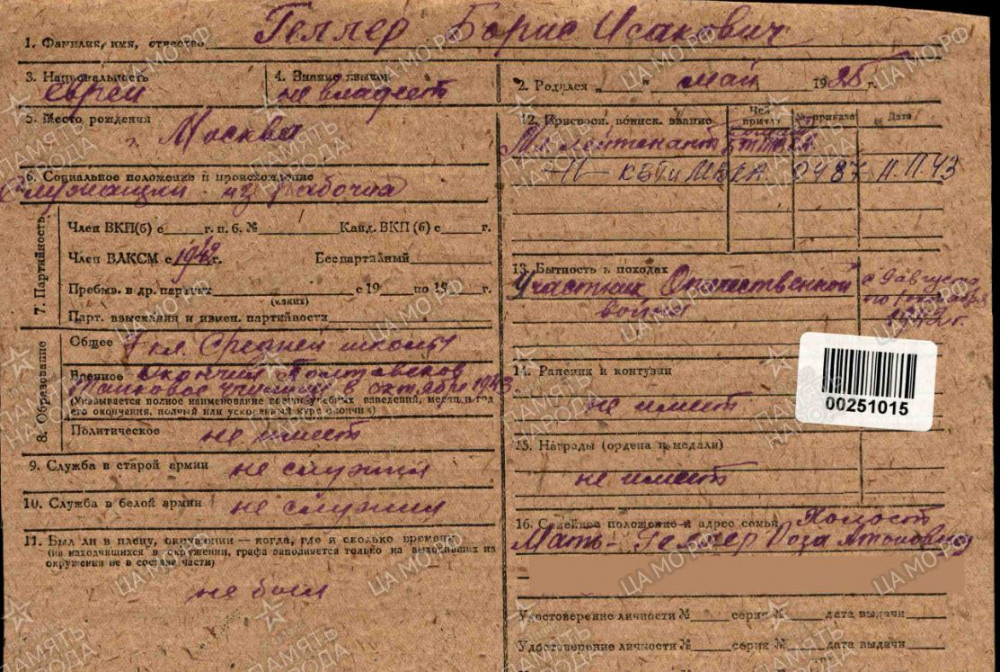 1. Фамилия, имя, отчество Геллер Борис Исакович
3. Национальность еврей
4. Знание языков не владеет
2. Родился " " май 1925 г.
5. Место рождения г. Москва
6. Социальное положение и происхождение
Служащий из рабочих
7. Партийность
Член ВКП(б) с г. п. б. № Канд. ВКП (б) с г.
Член ВЛКСМ с 1942 г. Беспартийный
Пребыв. в др. партиях с 19 по 19 г.
(каких)
Парт. взыскания и измен. партийности
8. Образование
Общее 7 кл. Средней школы
Военное окончил Полтавское
Танковое училище в октябре 1943
(Указывается полное наименование военно-учебных заведений, месяц и год
его окончания, полный или ускоренный курс окончил)
Политическое не имеет
9. Служба в старой армии не служил
10. Служба в белой армии не служил
11. Был ли в плену, окружении — когда, где и сколько времени
(на находившихся в окружении, графа заполняется только на выходивших из
окружения не в составе части)
не был
12. Присвоен. воинск. звание
Чей приказ № приказа Дата
Мл. лейтенант
—〃— КБТ и МВ КА 0487 11.11.43
13. Бытность в походах
Участник Отечественной
войны
с 9 августа
по
1942 г.
14. Ранения и контузии
не имеет
00251015
15. Награды (ордена и медали)
не имеет
16. Семейное положение и адрес семьи Холост
Мать - Геллер Роза
Удостоверение личности № серия № дата выдачи
Удостоверение личности № серия № дата выдачи
Удостоверение личности № серия № дата выдачи
ПАМЯТЬ НАРОДА
ЦАМО.РФ